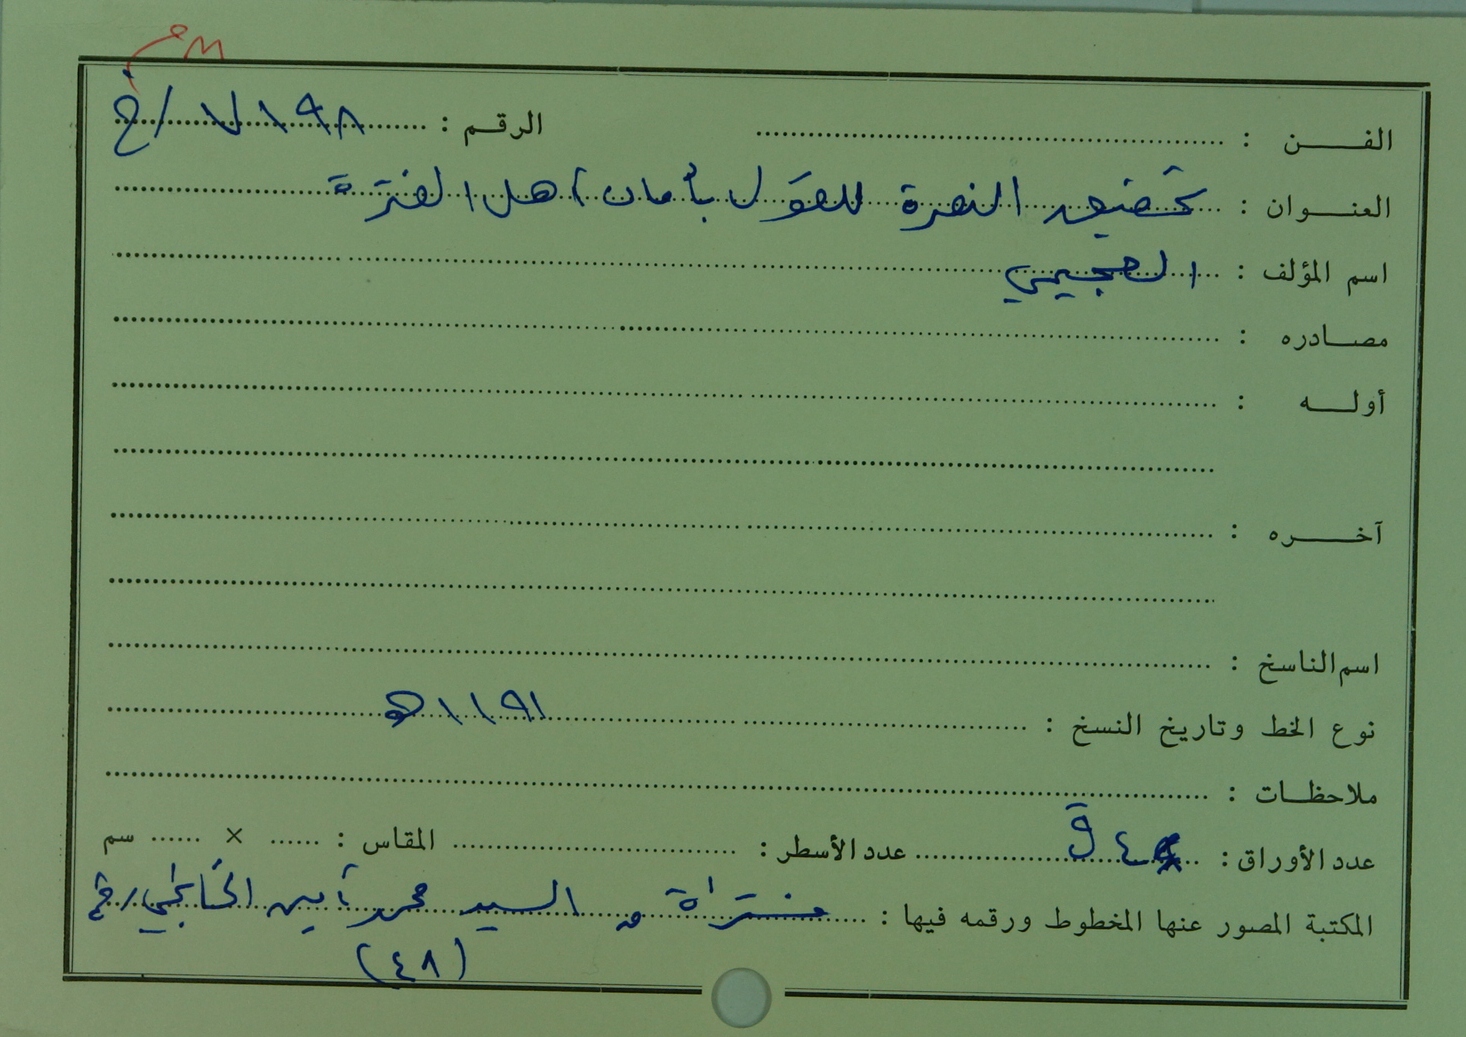 الفـــن : الرقـم : ٧١٩٨ / خ
العنـــوان : تحقيق النصرة للقول بأمان أهل الفترة
اسم المؤلف : العجيمي
مصـــادره :
أولـــه :
آخـــره :
اسم الناسخ :
نوع الخط وتاريخ النسخ : ١١٩١ هـ
ملاحظـات :
عدد الأوراق : ٤ ق عدد الأسطر : المقاس : × سم
المكتبة المصور عنها المخطوط ورقمه فيها : مشتراة من السيد محمد أمين الخانجي / خ
(٤٨)